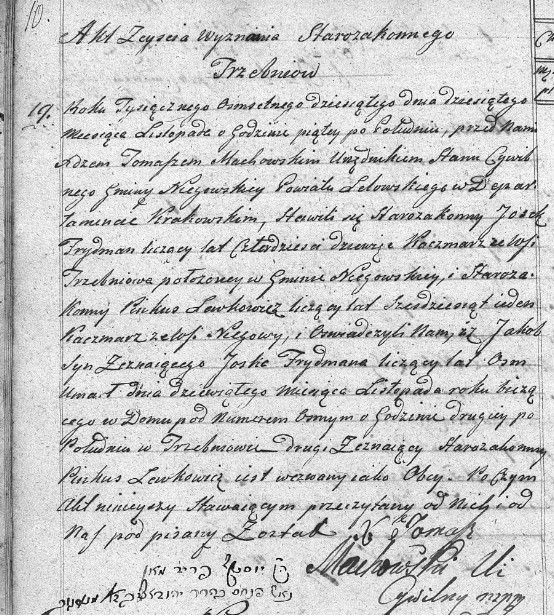 10.
Akt Zeyścia Wyznania Starozakonnego
Trzebniow
19.
Roku Tysięcznego Osmsetnego dziesiątego dnia dziesiątego
Miesiąca Listopada o Godzinie piątey po Południu, przed Nami
Xdzem Tomaszem Machowskim Urzędnikiem Stanu Cywil-
nego Gminy Niegowskiey Powiatu Lelowskiego w Depar-
tamencie Krakowskim, Stawili się Starozakonny Josek
Frydman liczący lat Czterdzieści dziewięć Kaczmarz ze Wsi
Trzebniowa położoney w Gminie Niegowskiey, i Staroza-
konny Pinkus Lewkowicz liczący lat Sześdziesiąt ieden
Kaczmarz ze Wsi Niegowy, i Oświadczyli Nam, iż Jakob
Syn Zeznaiącego Joska Frydmana liczący lat Osm
Umarł dnia dziewiątego Miesiąca Listopada roku bieżą-
cego w Domu pod Numerem Osmym o Godzinie drugiey po
Południu w Trzebniowie drugi Zeznaiący Starozakonny
Pinkus Lewkowicz iest wezwany iako Obcy. Po Czym
Akt ninieyszy Stawaiącym przeczytany od Nich i od
Nas pod pisany Został X Tomasz
Machowski U
Cywilny mpp